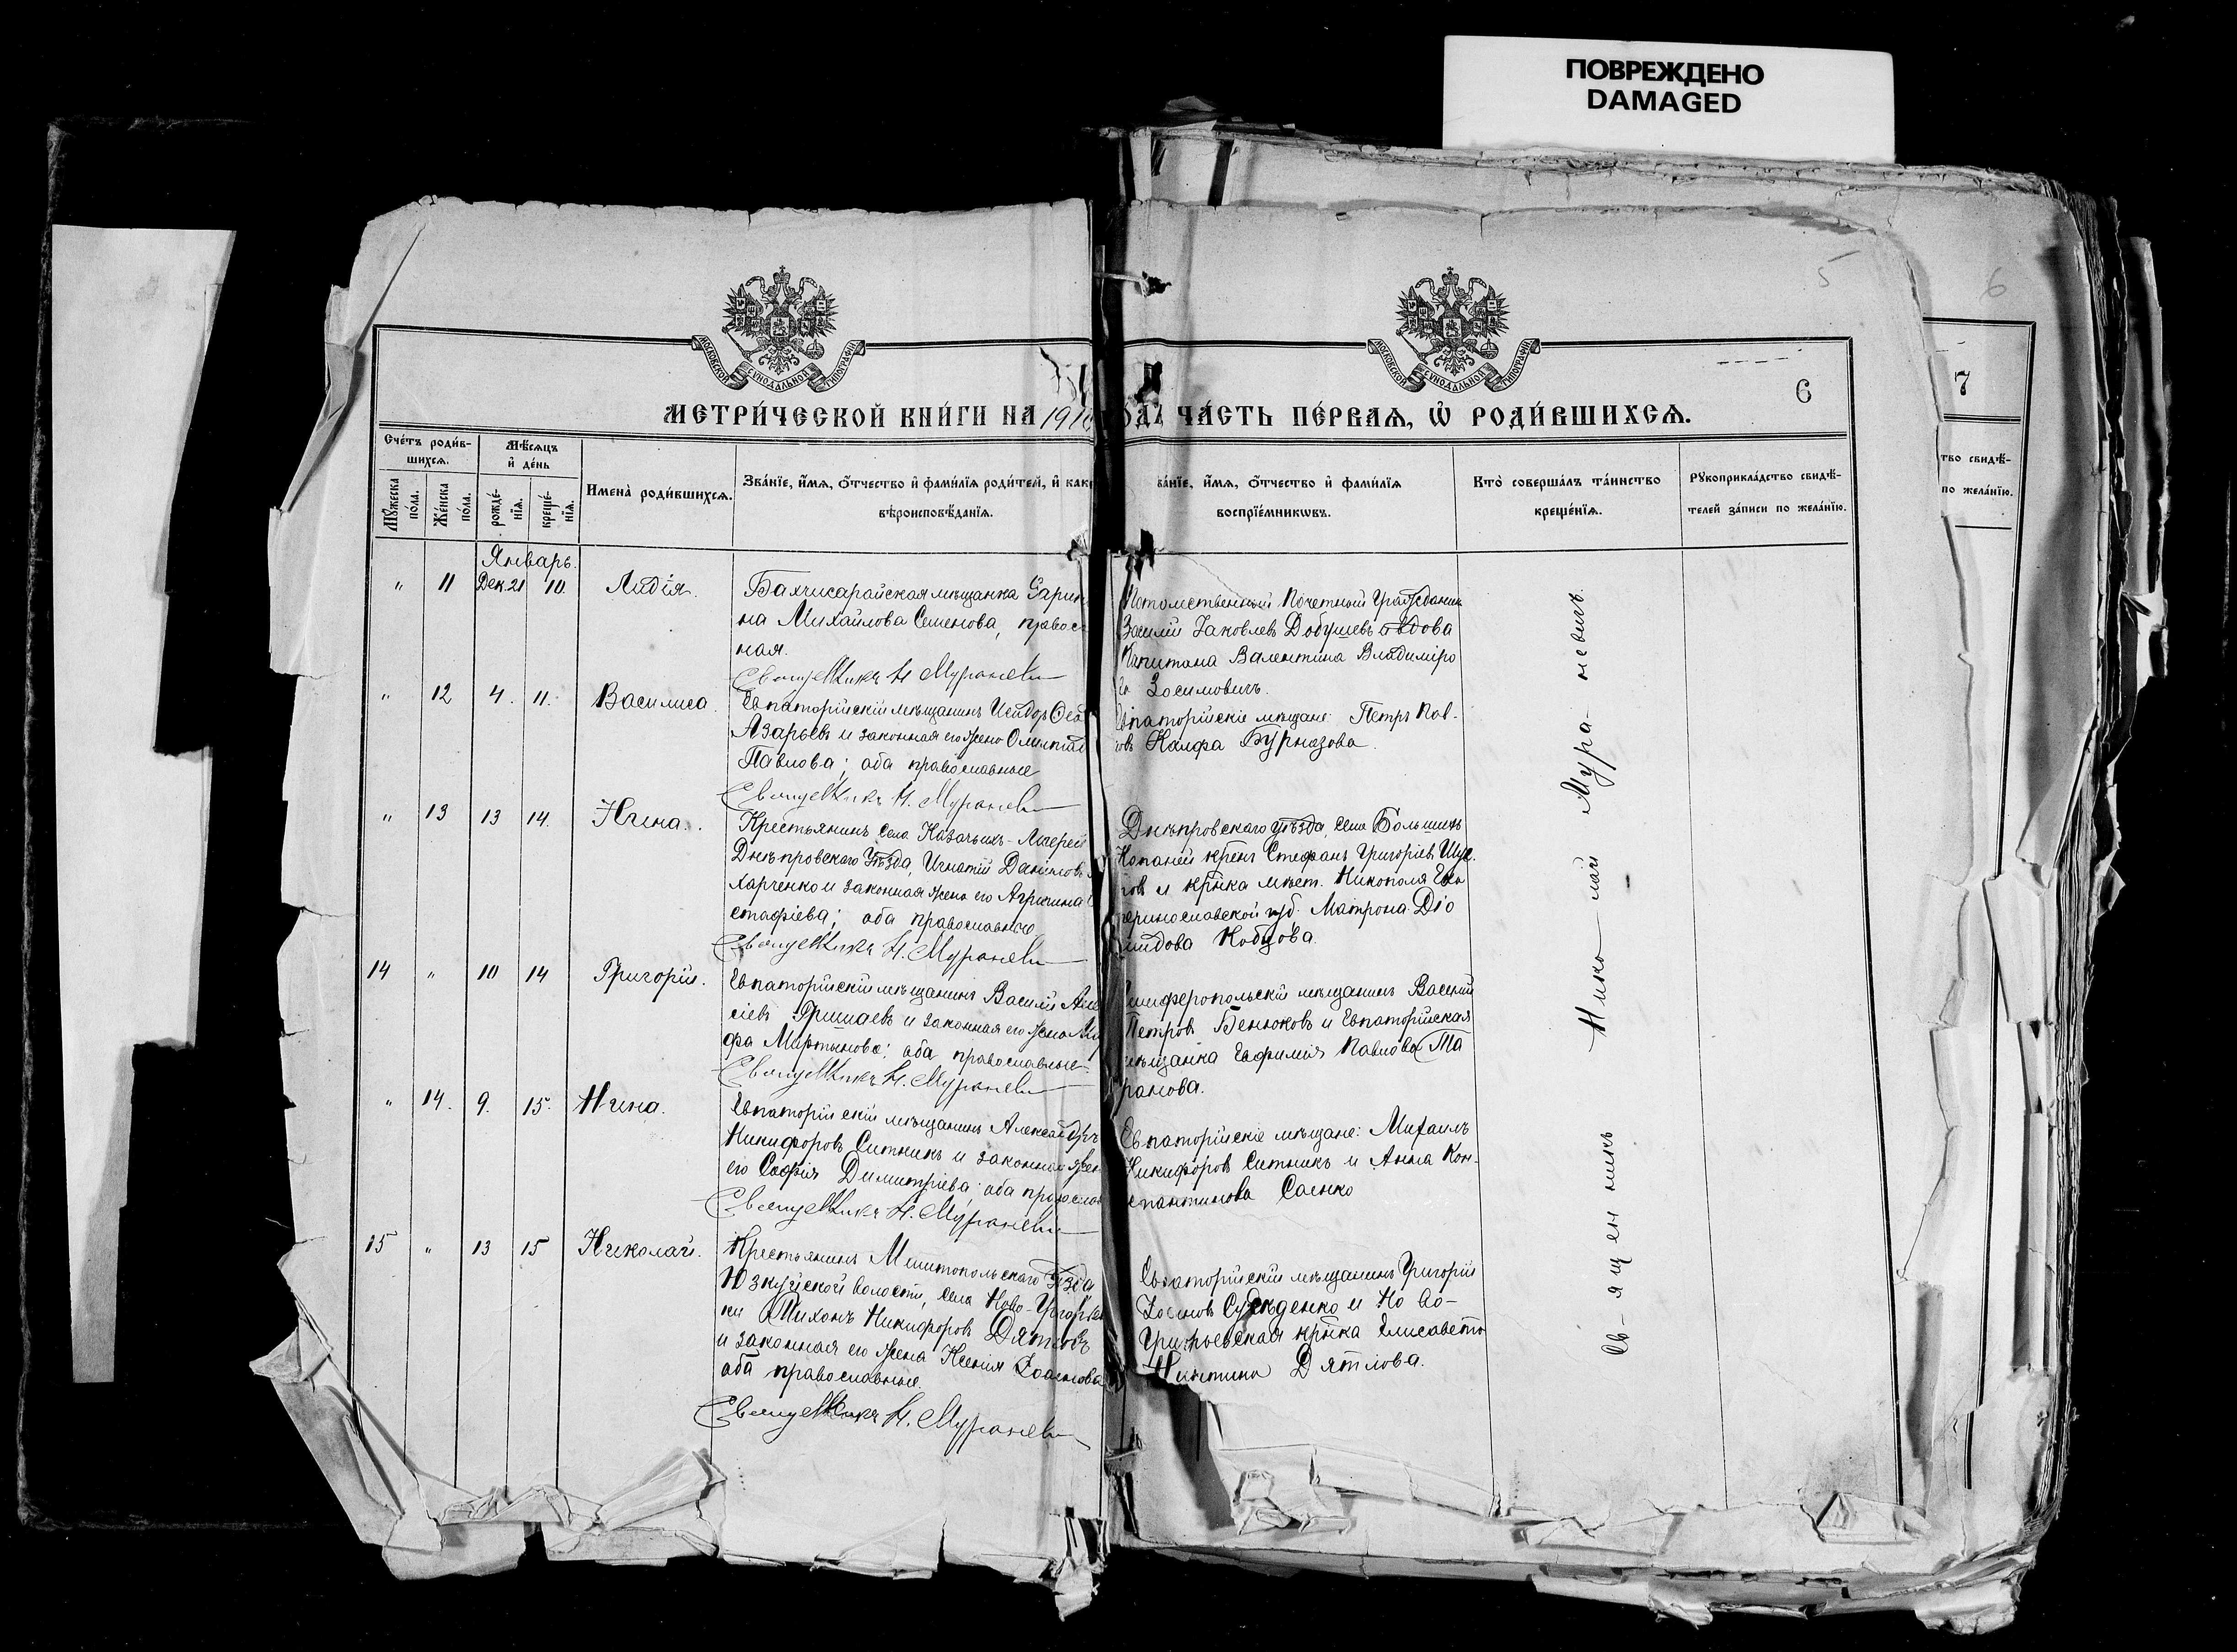 ПОВРЕЖДЕНО
DAMAGED
5
6
МОСКОВСКОЙ СУНОДАЛЬНОЙ ТИПОГРАФІИ
МОСКОВСКОЙ СУНОДАЛЬНОЙ ТИПОГРАФІИ
6
7
МЕТРИ́ЧЕСКОЙ КНИ́ГИ НА 191
ЧА́СТЬ ПЕ́РВАЯ, Ѡ҆ РОДИ́ВШИХСЯ.
Сче́тъ роди́в-
шихся.
Мѣ́сяцъ
и҆ де́нь
Мꙋ́жеска
по́ла.
Же́нска
по́ла.
рожде́-
нїя.
креще́-
нїя.
Имена̀ роди́вшихся.
Зва́нїе, и҆́мя, о҆́тчество и҆ фами́лїя роди́телей, и҆ како
вѣроисповѣ́данїя.
ва́нїе, и҆́мя, о҆́тчество и҆ фами́лїя
воспрїе́мниковъ.
Кто̀ соверша́лъ та́инство
креще́нїя.
Рꙋкоприкла́дство свидѣ́-
телей за́писи по жела́нїю.
тво свидѣ́-
по жела́нїю.
Январь.
" 11 Дек. 21 10. Лидія.
Бахчисарайская мѣщанка
на Михайлова Семенова, правос
ная.
Священникъ Н. Мураневи
Потомственный Почетный Гражданин
Іаковлевъ вдова
Капитана Валентина Владиміро
Зосимовичъ.
" 12 4. 11. Василиса.
Евпаторійскій мѣщанинъ Исидоръ Ѳео
Азарьевъ и законная его жена Олимпіад
Павлова; оба православные
Священникъ Н. Мураневи
Евпаторійскіе мѣщане: Петръ Пав-
овъ Калфа Бурназова.
" 13 13 14. Нина.
Крестьянинъ села Казачьихъ-Лагерей
Днѣпровскаго Уѣзда, Игнатій Даніиловъ
Харченко и законная жена его Агрипина
стафіева; оба православные
Священникъ Н. Мураневи
Днѣпровскаго уѣзда, села Большихъ
Копаней кр-нъ Стефанъ Григоріевъ
и кр-нка мѣст. Никополя Ека
еринославской губ. Матрона Діо
идова Кобцова.
14 " 10 14 Григорій.
Евпаторійскій мѣщанинъ Василій Але
сіевъ Гришаевъ и законная его жена
фа Мартынова; оба православные.
Священникъ Н. Мураневи
имферопольскій мѣщанинъ Василій
Петровъ Бенюковъ и Евпаторійская
мѣщанка Евфимія Павлова Та
ранова.
" 14. 9. 15. Нина.
Евпаторійскій мѣщанинъ Александръ
Никифоровъ Ситникъ и законная жен
его Софія Димитріева; оба православ
Священникъ Н. Мураневи
Евпаторійскіе мѣщане: Михаилъ
Никифоровъ Ситникъ и Анна Кон-
стантинова Саенко
15 " 13 15 Николай.
Крестьянинъ Мелитопольскаго Уѣзда
Юзкуйской волости, села Ново-Григорьев
ки Тихонъ Никифоровъ Дятловъ
и законная его жена Ксенія Іоаннова
оба православные.
Священникъ Н. Мураневи
Евпаторійскій мѣщанинъ Григорій
и Но во-
Григорьевская кр-нка Елисавета
Никитина Дятлова.
Св-ященникъ Нико-лай Мура-невичъ.